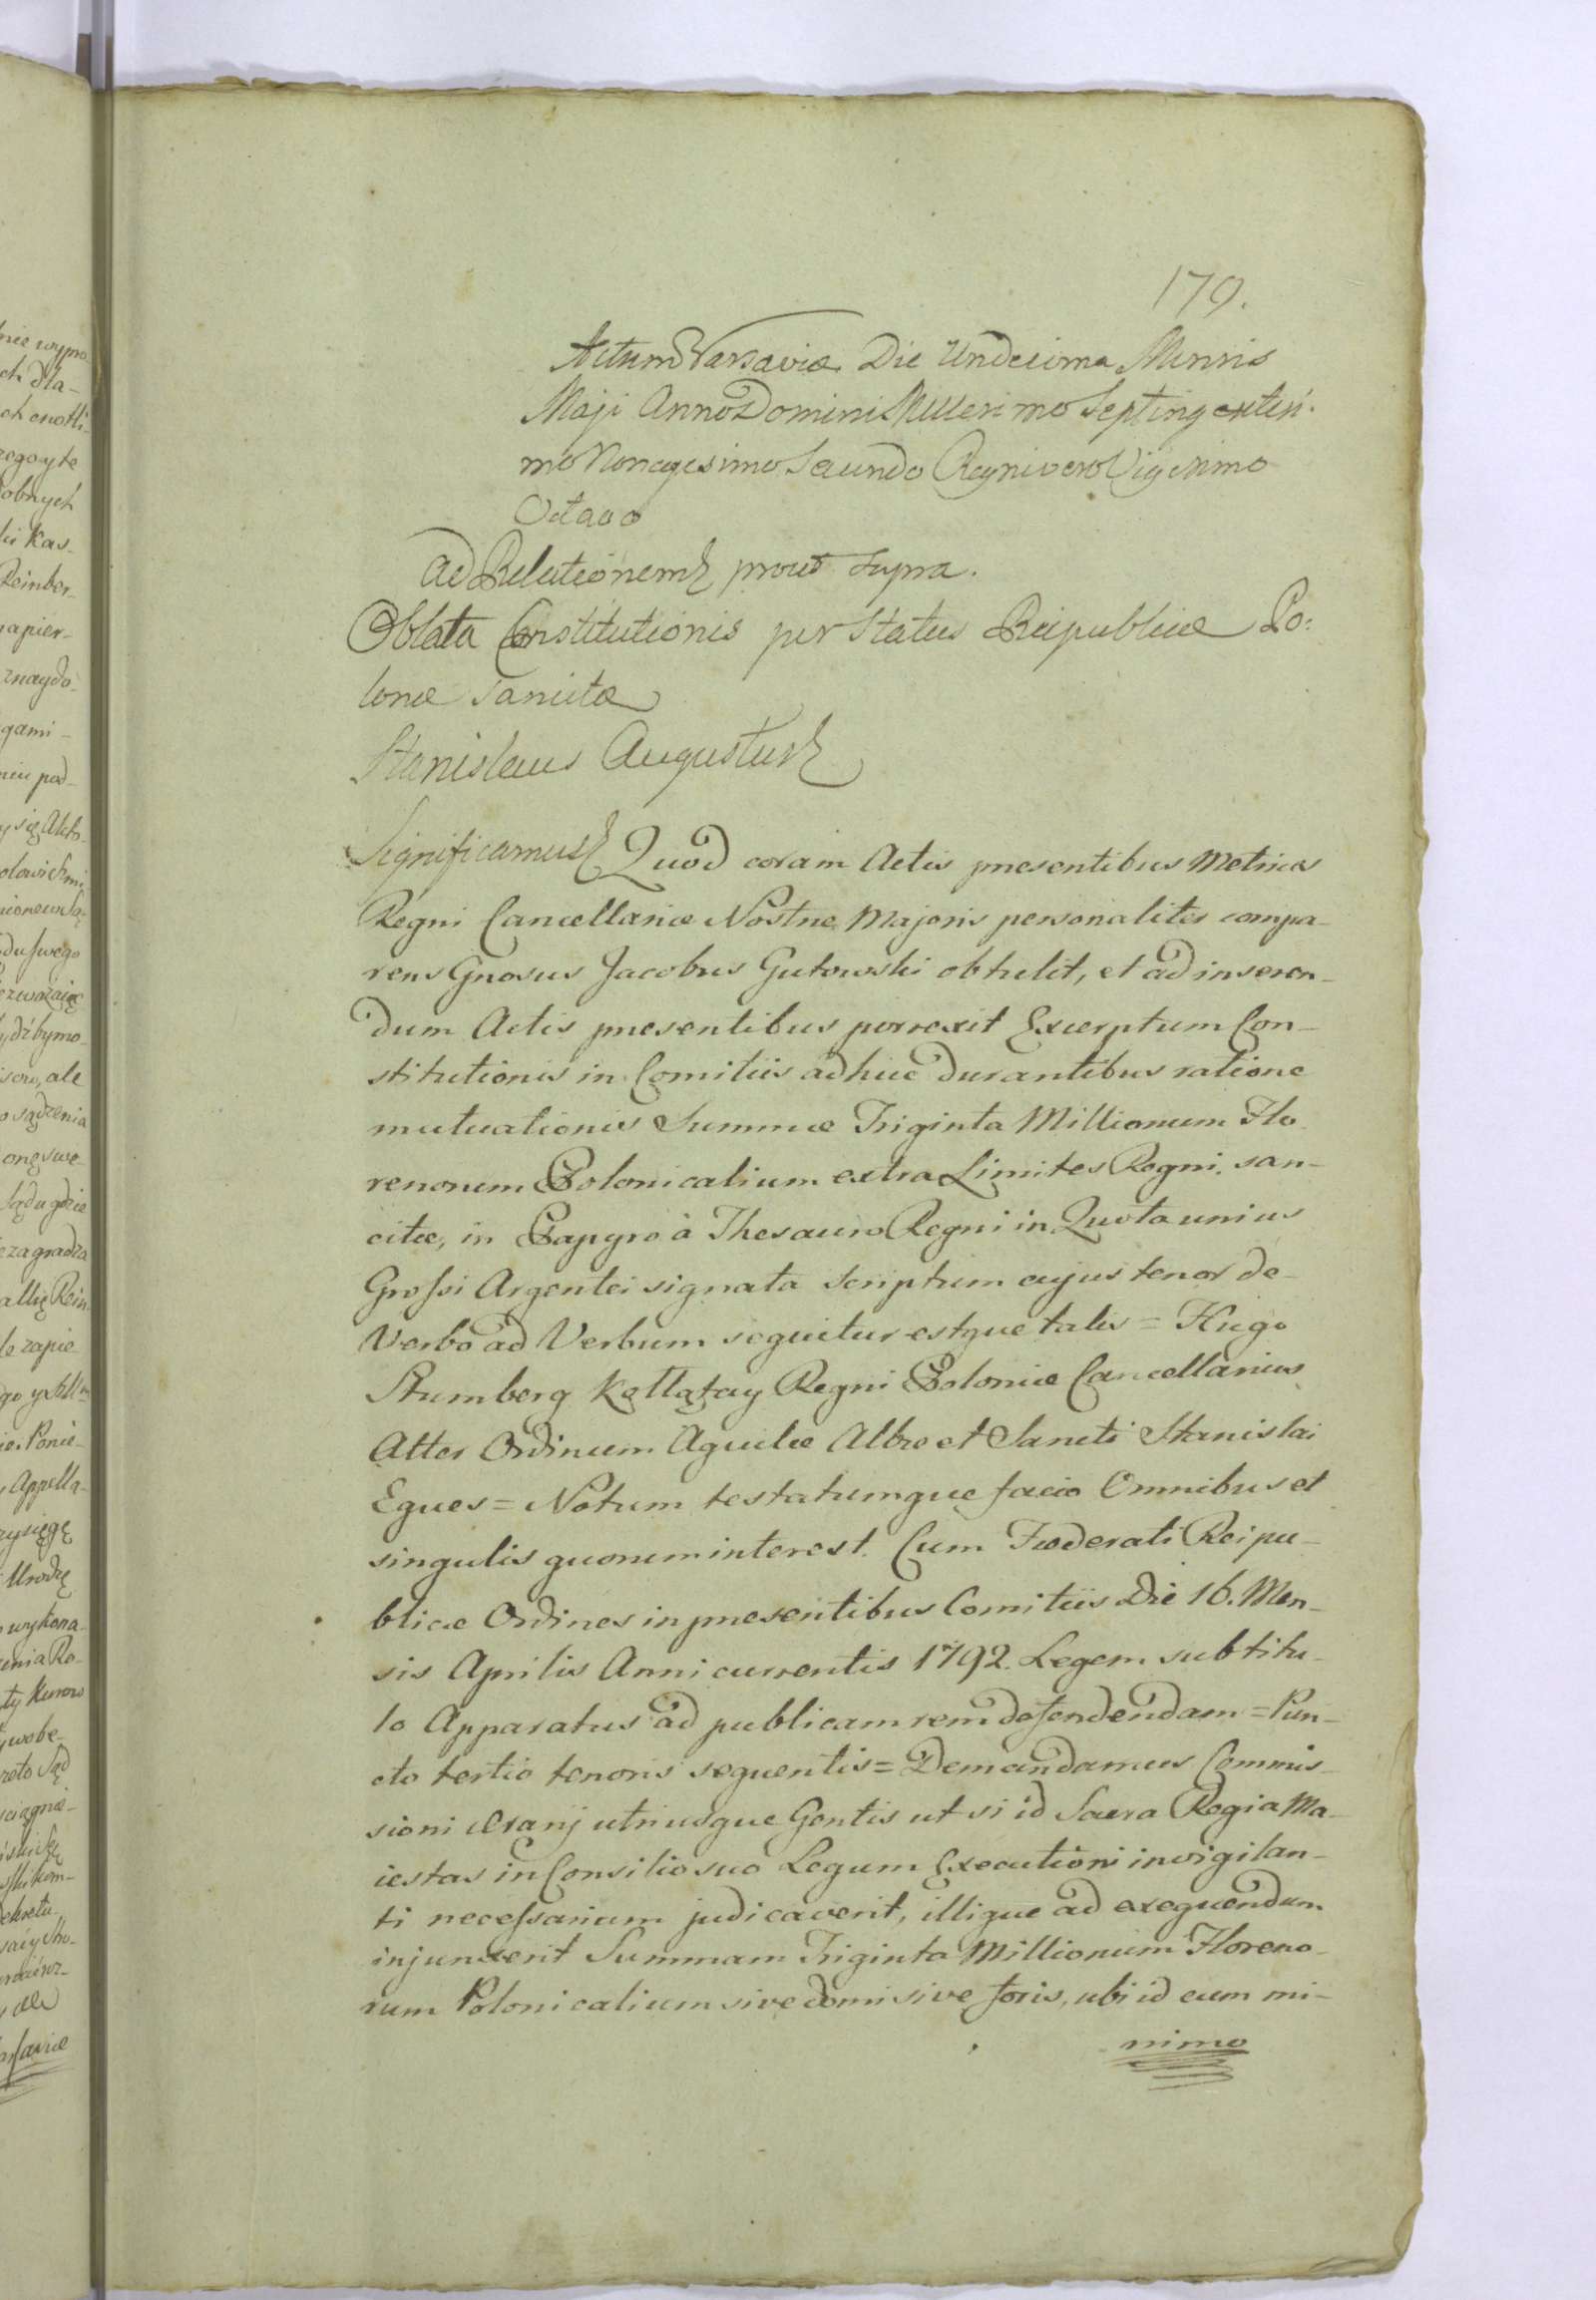 179.
Actum Varsaviæ Die Undecima Mensis
Maji Anno Domini Millesimo Septingentesi-
mo Nonagesimo Secundo Regni vero Vigesimo
Octavo
Ad Relationem prout supra.
Oblata Constitutionis per Status Reipublicæ Po:
lonæ Sancitæ
Stanislaus Augustus
Significamus Quod coram Actis præsentibus Metrices
Regni Cancellariæ Nostræ Majoris personaliter compa-
rens Gnosus Jacobus Gutowski obtulit, et ad inseren-
dum Actis præsentibus porrexit Excerptum Con-
stitutionis in Comitiis adhuc durantibus ratione
mutuationis Summæ Triginta Millionum Flo
renorum Polonicalium extra Limites Regni san-
citæ, in Papyro à Thesauro Regni in Quota unius
Grossi Argentei signata scriptum cujus tenor de
Verbo ad Verbum sequitur estque talis = Hugo
Stumberg Kołłątay Regni Poloniæ Cancellarius
Alter Ordinum Aquilæ Albæ et Sancti Stanislai
Eques = Notum testatumque facio Omnibus et
singulis quorum interest. Cum Fœderati Reipu-
blicæ Ordines in præsentibus Comitiis Die 16. Men-
sis Aprilis Anni currentis 1792. Legem sub titu-
lo Apparatus ad publicam rem defendendam = Pun-
cto tertio tenoris sequentis = Demandamus Commis-
sioni Ærarij utriusque Gentis ut si id Sacra Regia Ma-
iestas in Consilio suo Legum Executioni invigilan-
ti necessarium judicaverit, illique ad exequendum
injunxerit Summam Triginta Millionum Floreno-
rum Polonicalium sive domi sive foris, ubi id cum mi-
nimo